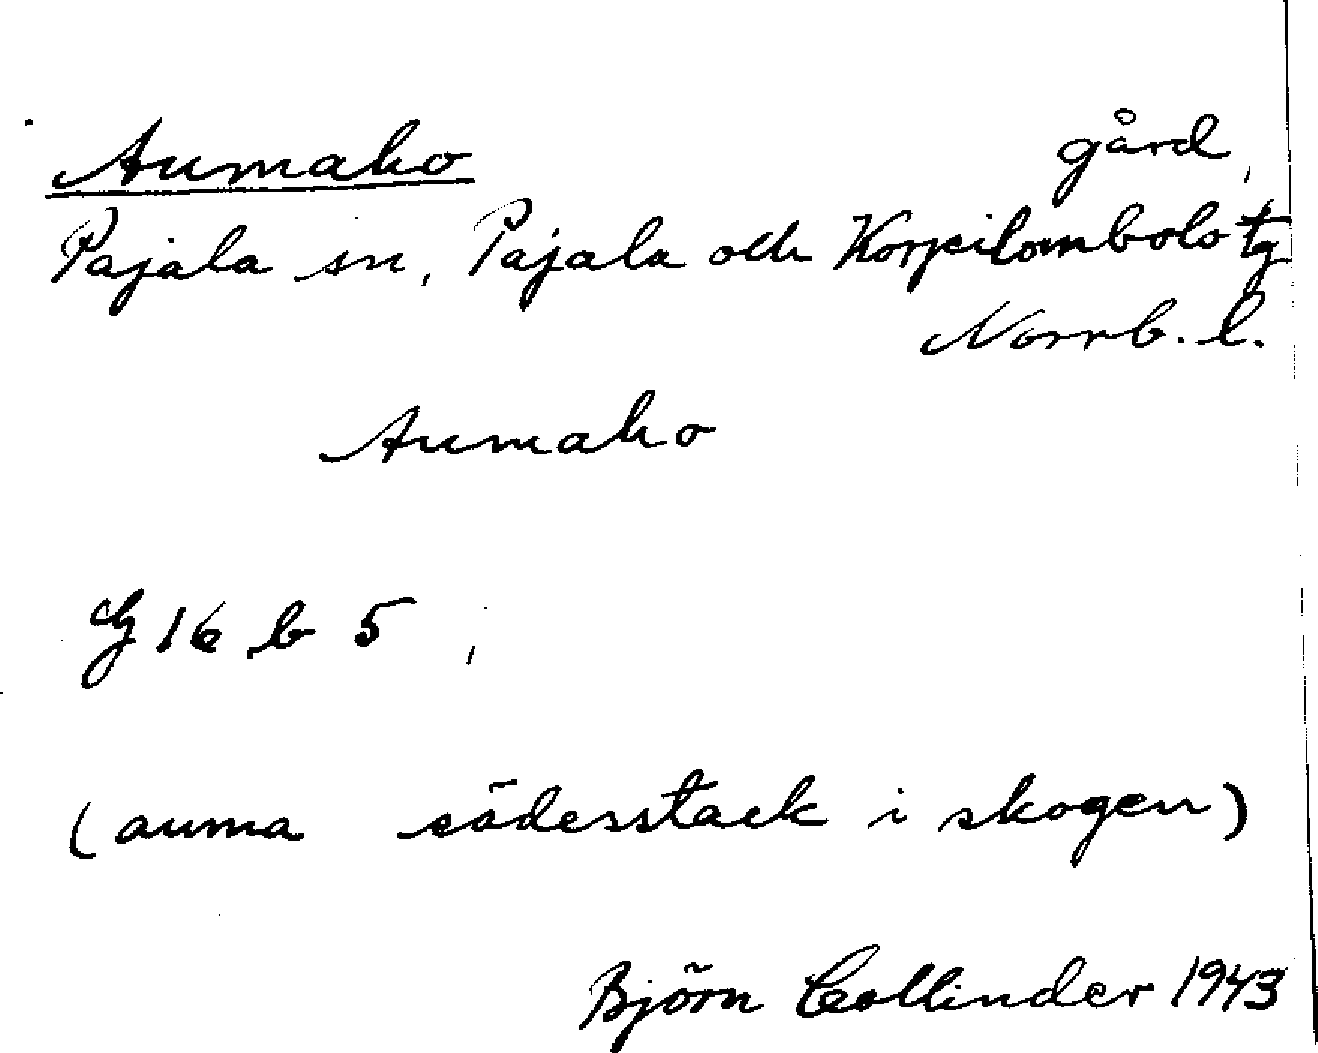 Aumaho gård,
Pajala sn, Pajala och Korpilombolo tg
Norrb. l.
Aumaho
G 16 b 5,
(auma sädesstack i skogen)
Björn Collinder 1943